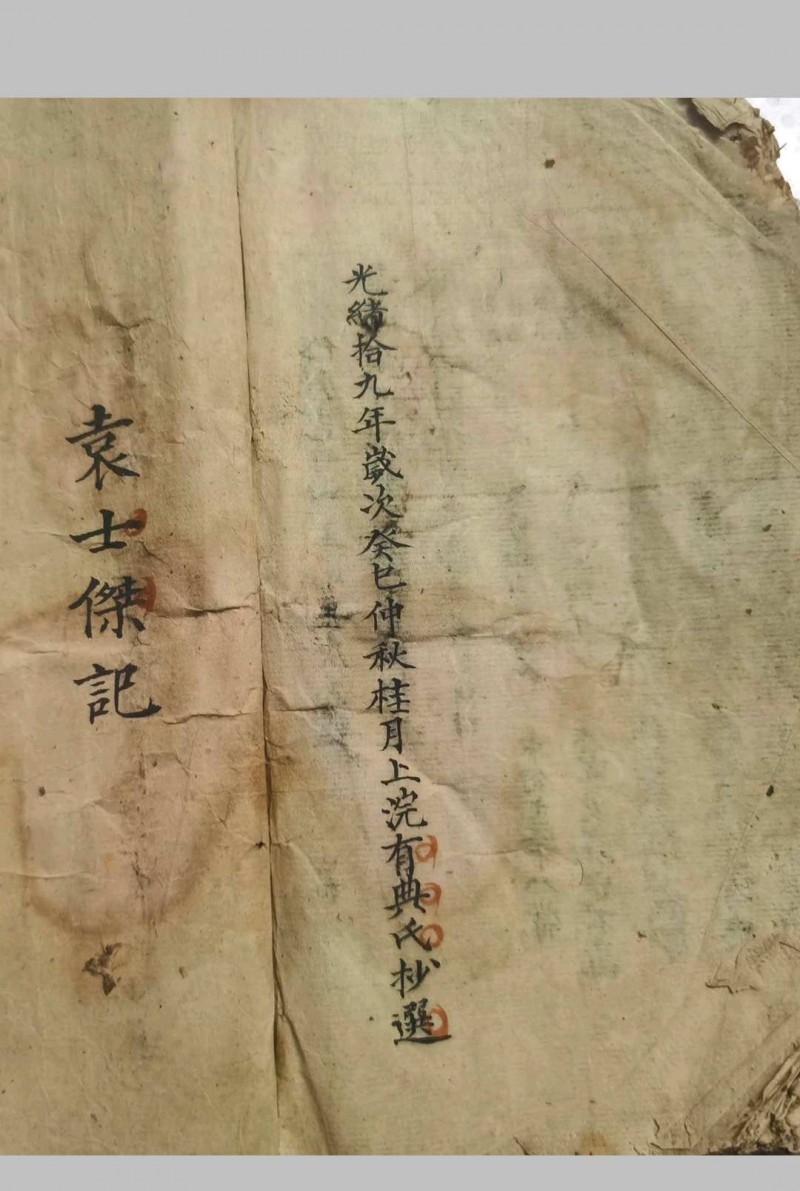 光緒拾九年歲次癸巳仲秋桂月上浣有典氏抄選
袁士傑記